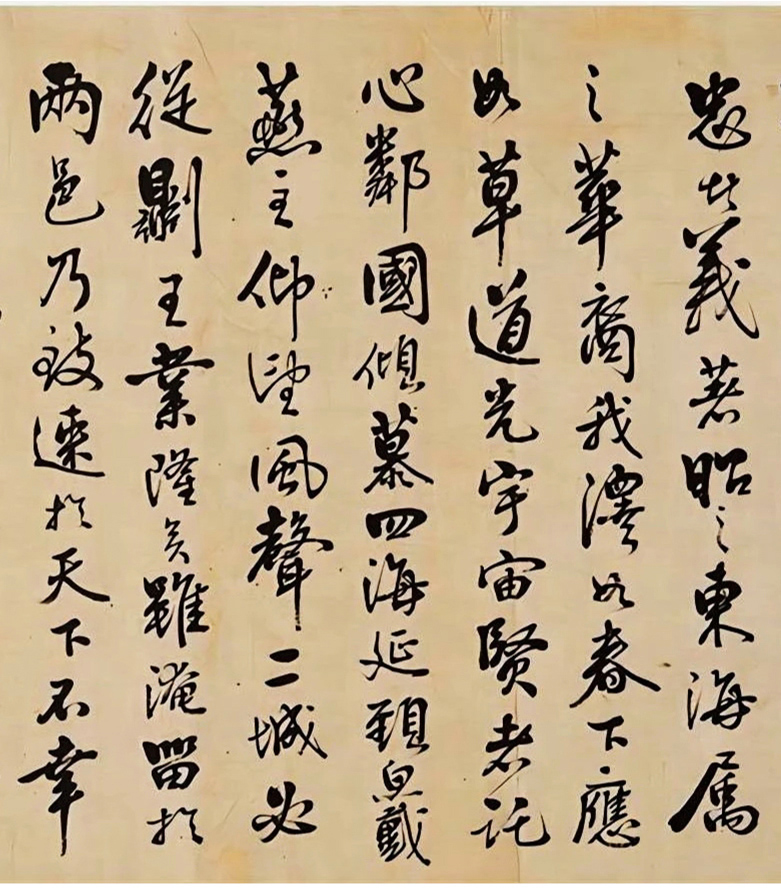 者義著昭之東海屬
之華裔我澤如春下應
如草道光宇宙賢者託
心鄰國傾慕四海延頸思戴
燕主仰望風聲二城必
從則王業隆矣雖淹留於
兩邑乃致速於天下不幸